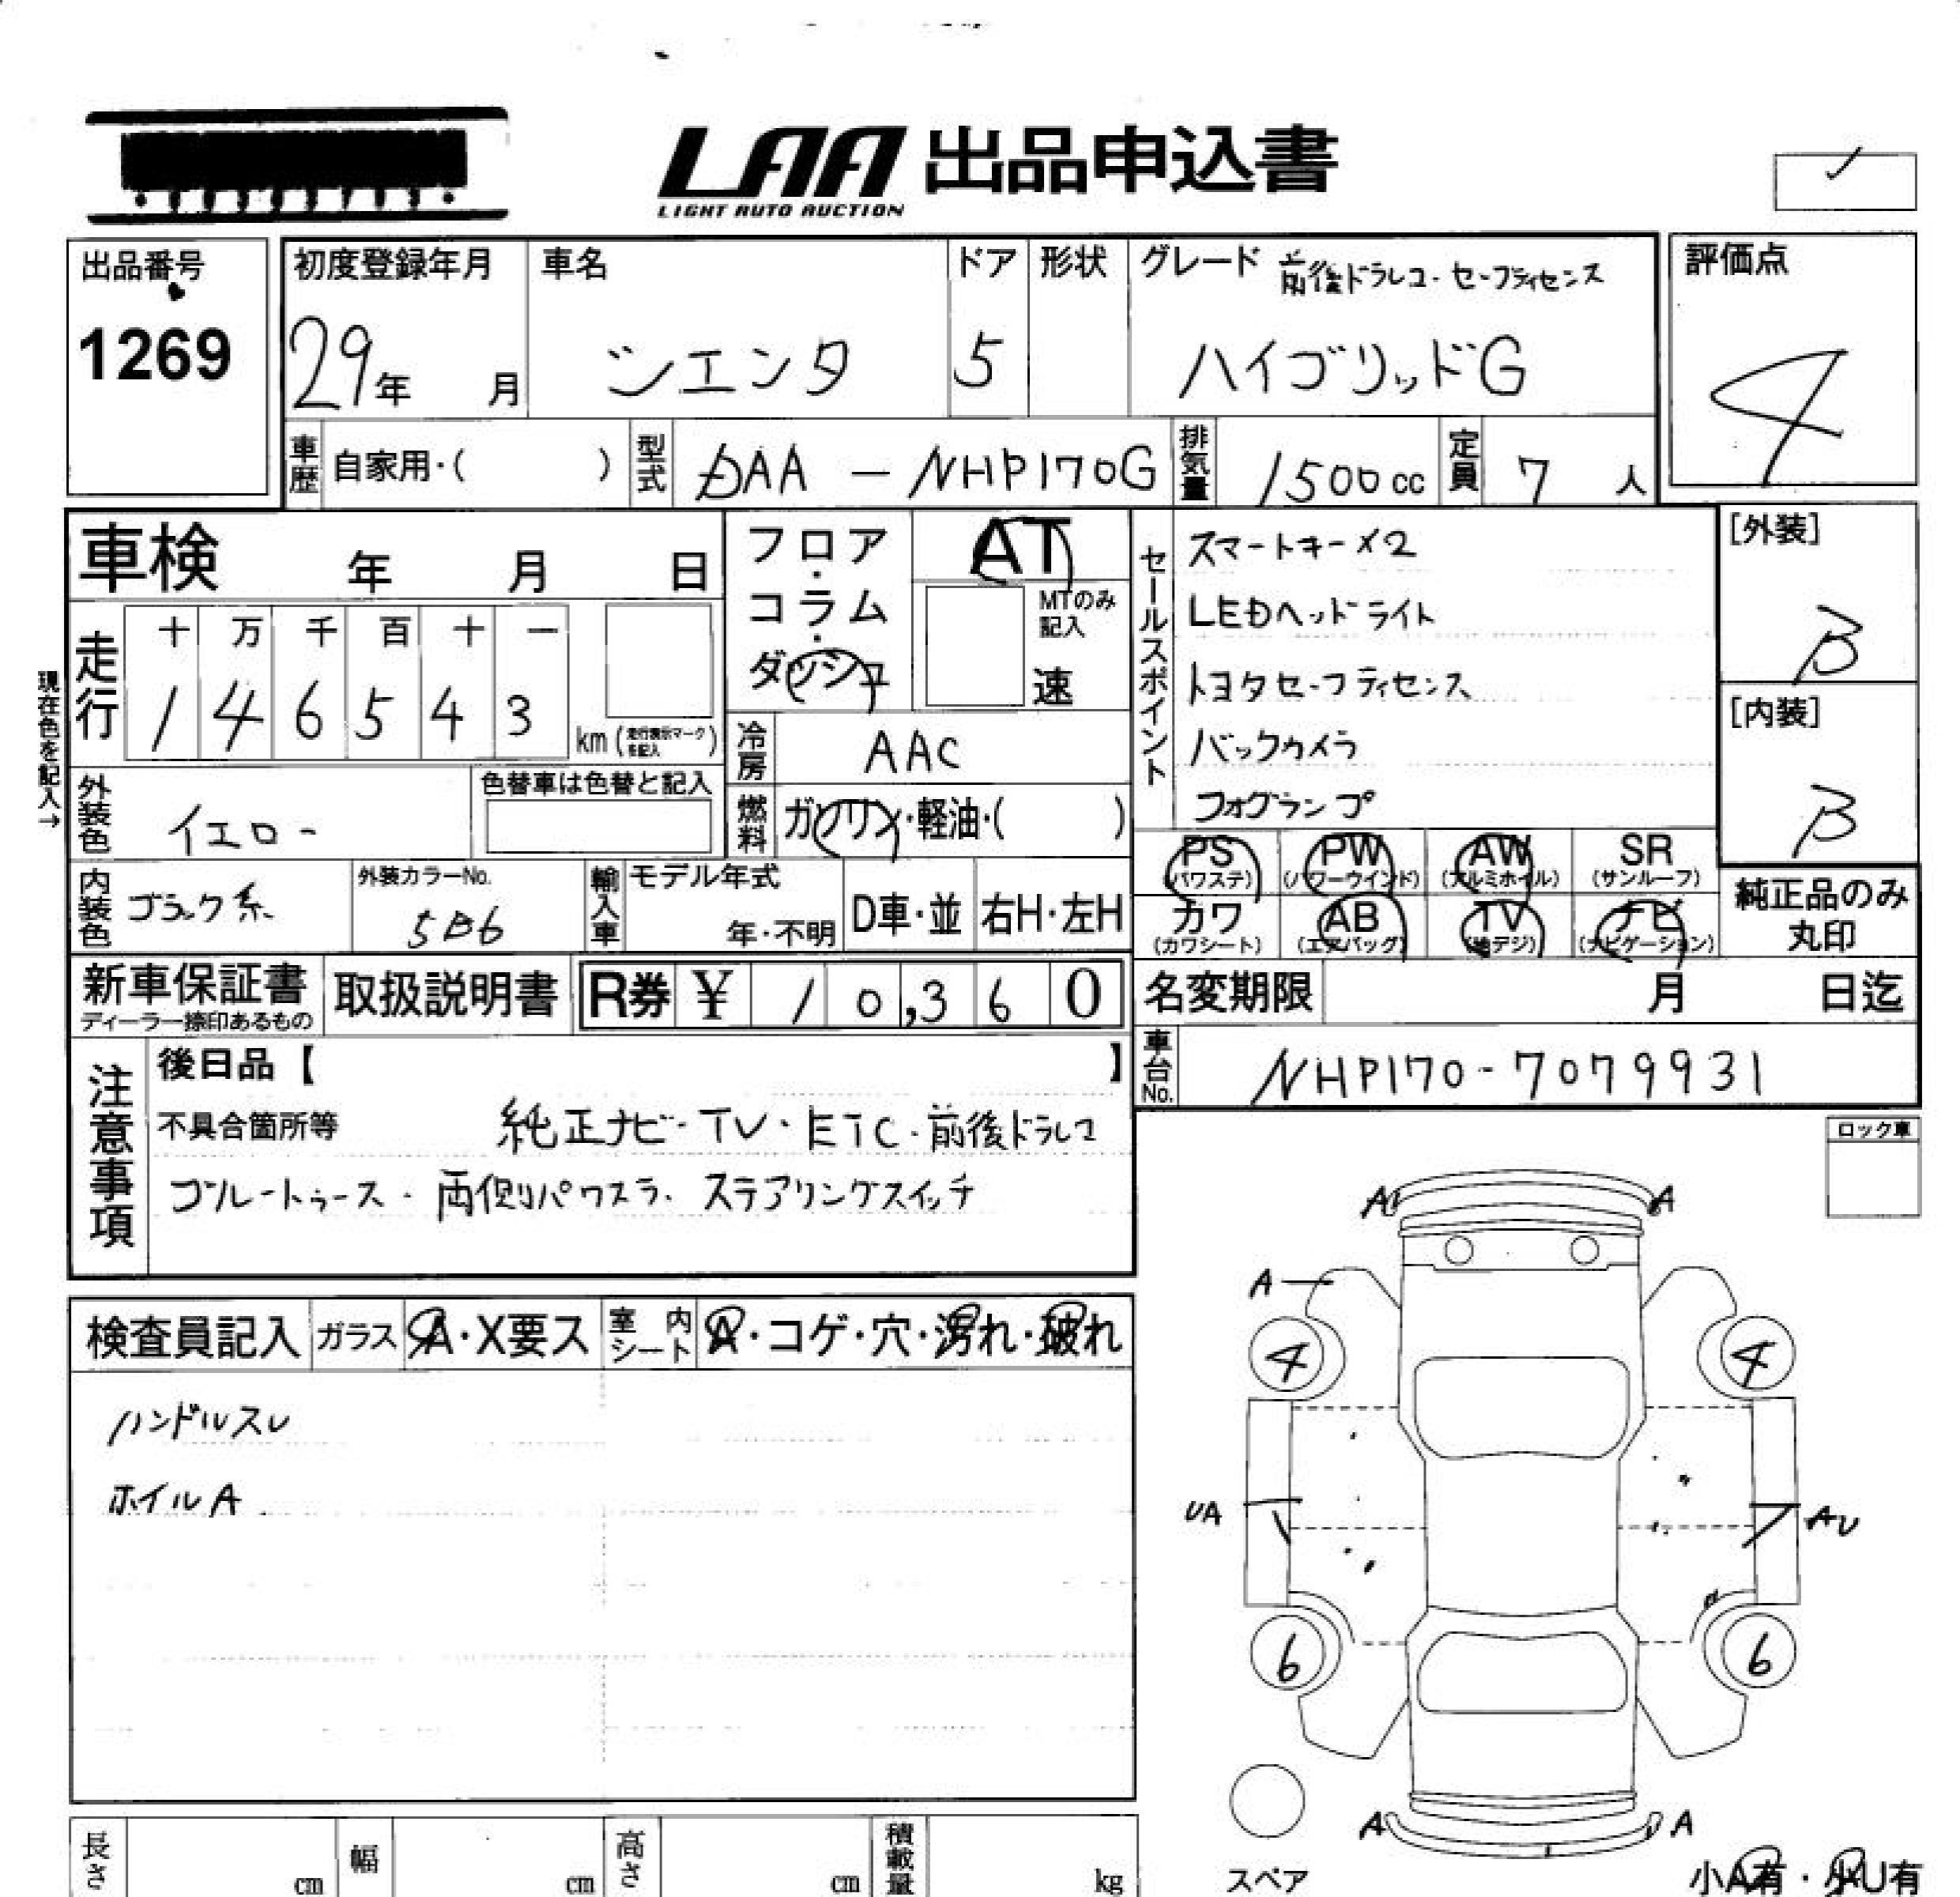 LAA 出品申込書
LIGHT AUTO AUCTION
出品番号
1269
初度登録年月
29年 月
車名
シエンタ
ドア
5
形状
グレード 前後ドラレコ・セーフティセンス
ハイブリッドG
評価点
4
車歴 自家用・( )
型式 DAA - NHP170G
排気量 1500 cc
定員 7 人
車検 年 月 日
フロア・コラム・ダッシュ
AT
MTのみ記入
速
走行
十 万 千 百 十 一
1 4 6 5 4 3
km (走行表示マークを記入)
現在色を記入→
冷房 AAC
外装色 イエロー
色替車は色替と記入
燃料 ガソリン・軽油・( )
内装色 ブラック系
外装カラーNo.
5B6
輸入車
モデル年式
年・不明
D車・並
右H・左H
セールスポイント
スマートキー×2
LEDヘッドライト
トヨタセーフティセンス
バックカメラ
フォグランプ
[外装]
B
[内装]
B
PS (パワステ)
PW (パワーウインド)
AW (アルミホイル)
SR (サンルーフ)
カワ (カワシート)
AB (エアバッグ)
TV (地デジ)
ナビ (ナビゲーション)
純正品のみ丸印
新車保証書
ディーラー捺印あるもの
取扱説明書
R券 ¥ 10,360
名変期限 月 日迄
車台No. NHP170-7079931
注意事項
後日品【 】
不具合箇所等 純正ナビ・TV・ETC・前後ドラレコ
ブルートゥース・両側パワスラ・ステアリングスイッチ
ロック車
検査員記入
ガラス A・X要ス
室内シート A・コゲ・穴・汚れ・破れ
ハンドルスレ
ホイルA
A A
A
4 4
UA AU
6 6
A A
スペア
小A有・小U有
長さ cm
幅 cm
高さ cm
積載量 kg